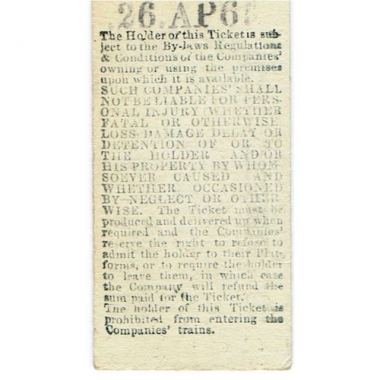 26.AP6
The Holder of this Ticket is sub-
ject to the By-laws Regulations
& Conditions of the Companies'
owning or using the premises
upon which it is available.
SUCH COMPANIES' SHALL
NOT BE LIABLE FOR PERS-
ONAL INJURY (WHETHER
FATAL OR OTHERWISE
LOSS DAMAGE DELAY OR
DETENTION OF OR TO
THE HOLDER AND/OR
HIS PROPERTY BY WHOM-
SOEVER CAUSED AND
WHETHER OCCASIONED
BY NEGLECT OR OTHER-
WISE. The Ticket must be
produced and delivered up when
required and the Companies'
reserve the right to refuse to
admit the holder to their plat-
forms, or to require the holder
to leave them, in which case
the Company will refund the
sum paid for the Ticket.
The holder of this Ticket is
prohibited from entering the
Companies' trains.